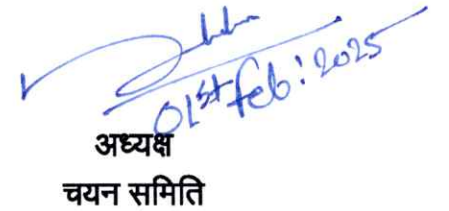 01st Feb: 2025
अध्यक्ष
चयन समिति